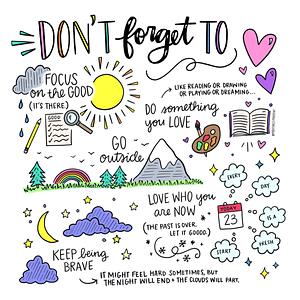 DON'T forget TO
FOCUS
on the GOOD
(IT'S THERE)
GOOD
LIKE READING OR DRAWING
OR PLAYING OR DREAMING...
DO something
you LOVE
GO
outside
LOVE WHO
you are
NOW
(THE PAST IS OVER.
LET IT GOOOO.)
EVERY
DAY
IS A
FRESH
START
TODAY
23
KEEP being
BRAVE
IT MIGHT FEEL HARD SOMETIMES, BUT
THE NIGHT WILL END + THE CLOUDS WILL PART.